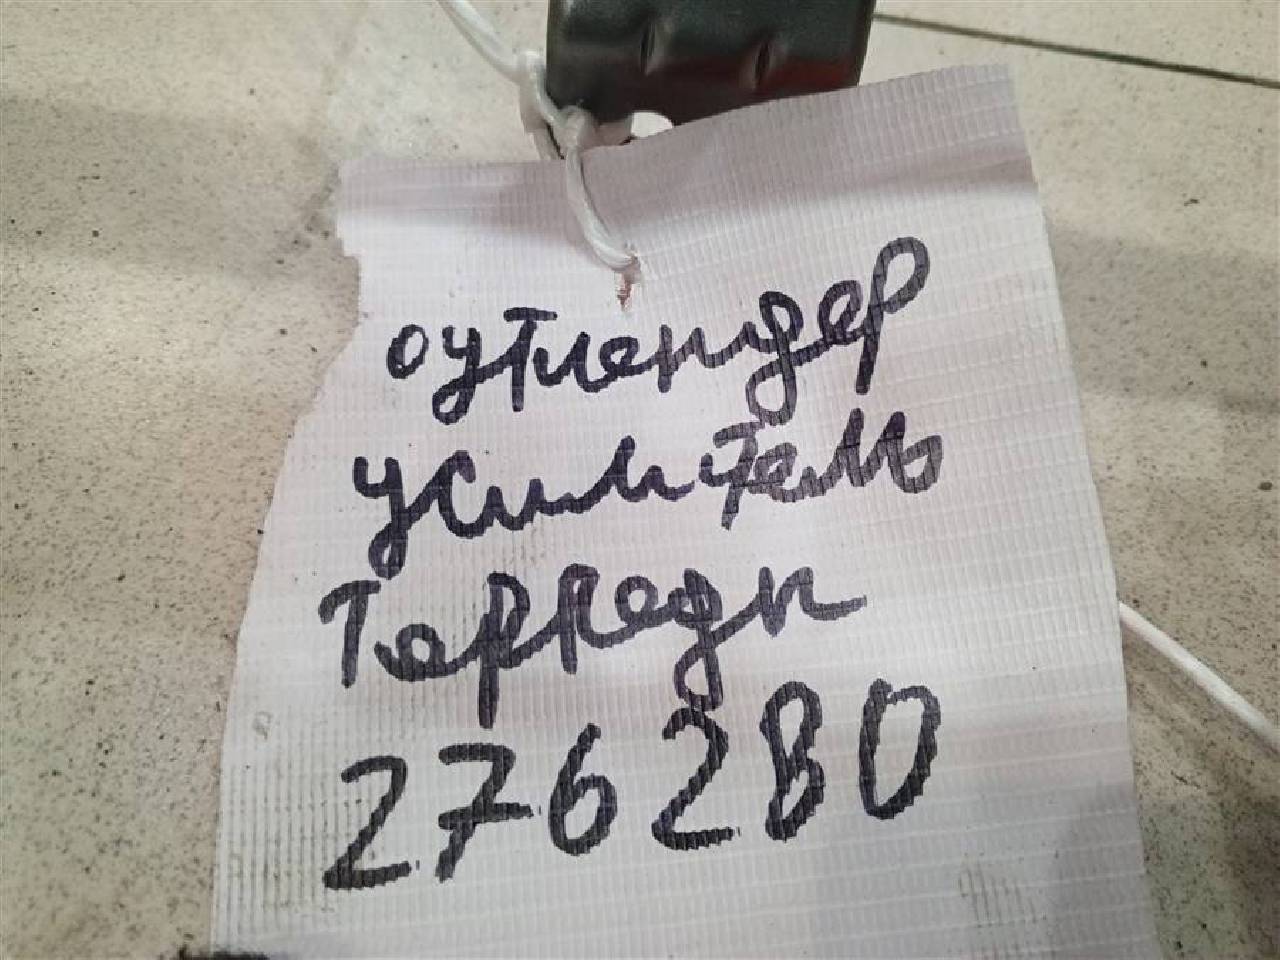 оутлендер
усилитель
Торкеды
276280